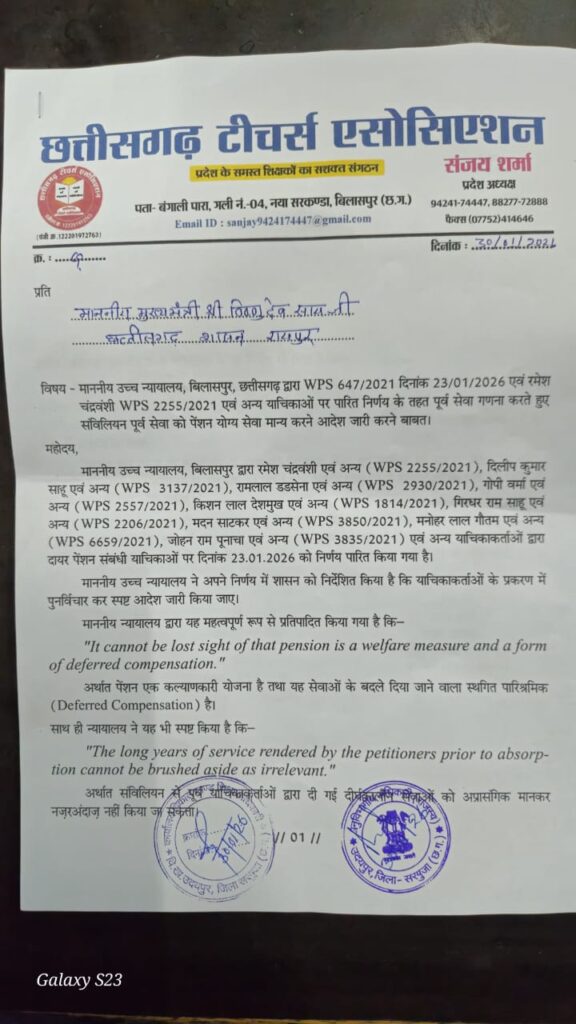 छत्तीसगढ़ टीचर्स एसोसिएशन
प्रदेश के समस्त शिक्षकों का सशक्त संगठन
संजय शर्मा
प्रदेश अध्यक्ष
पता- बंगाली पारा, गली नं.-04, नया सरकण्डा, बिलासपुर (छ.ग.)
94241-74447, 88277-72888
Email ID : sanjay9424174447@gmail.com
फैक्स (07752)414646
(पंजी क्र.122201972763)
क्र. :
दिनांक : 30/01/2026
प्रति
माननीय मुख्यमंत्री श्री विष्णुदेव साय जी
छत्तीसगढ़ शासन रायपुर
विषय - माननीय उच्च न्यायालय, बिलासपुर, छत्तीसगढ़ द्वारा WPS 647/2021 दिनांक 23/01/2026 एवं रमेश
चंद्रवंशी WPS 2255/2021 एवं अन्य याचिकाओं पर पारित निर्णय के तहत पूर्व सेवा गणना करते हुए
संविलियन पूर्व सेवा को पेंशन योग्य सेवा मान्य करने आदेश जारी करने बाबत।
महोदय,
माननीय उच्च न्यायालय, बिलासपुर द्वारा रमेश चंद्रवंशी एवं अन्य (WPS 2255/2021), दिलीप कुमार
साहू एवं अन्य (WPS 3137/2021), रामलाल डडसेना एवं अन्य (WPS 2930/2021), गोपी वर्मा एवं
अन्य (WPS 2557/2021), किशन लाल देशमुख एवं अन्य (WPS 1814/2021), गिरधर राम साहू एवं
अन्य (WPS 2206/2021), मदन साटकर एवं अन्य (WPS 3850/2021), मनोहर लाल गौतम एवं अन्य
(WPS 6659/2021), जोहन राम पूनाचा एवं अन्य (WPS 3835/2021) एवं अन्य याचिकाकर्ताओं द्वारा
दायर पेंशन संबंधी याचिकाओं पर दिनांक 23.01.2026 को निर्णय पारित किया गया है।
माननीय उच्च न्यायालय ने अपने निर्णय में शासन को निर्देशित किया है कि याचिकाकर्ताओं के प्रकरण में
पुनर्विचार कर स्पष्ट आदेश जारी किया जाए।
माननीय न्यायालय द्वारा यह महत्वपूर्ण रूप से प्रतिपादित किया गया है कि–
"It cannot be lost sight of that pension is a welfare measure and a form
of deferred compensation."
अर्थात पेंशन एक कल्याणकारी योजना है तथा यह सेवाओं के बदले दिया जाने वाला स्थगित पारिश्रमिक
(Deferred Compensation) है।
साथ ही न्यायालय ने यह भी स्पष्ट किया है कि–
"The long years of service rendered by the petitioners prior to absorp-
tion cannot be brushed aside as irrelevant."
अर्थात संविलियन से पूर्व याचिकाकर्ताओं द्वारा दी गई दीर्घकालीन सेवाओं को अप्रासंगिक मानकर
नज़रअंदाज़ नहीं किया जा सकता।
// 01 //
30/01/26
उदयपुर, जिला सरगुजा
उदयपुर, जिला- सरगुजा (छ.ग.)
Galaxy S23